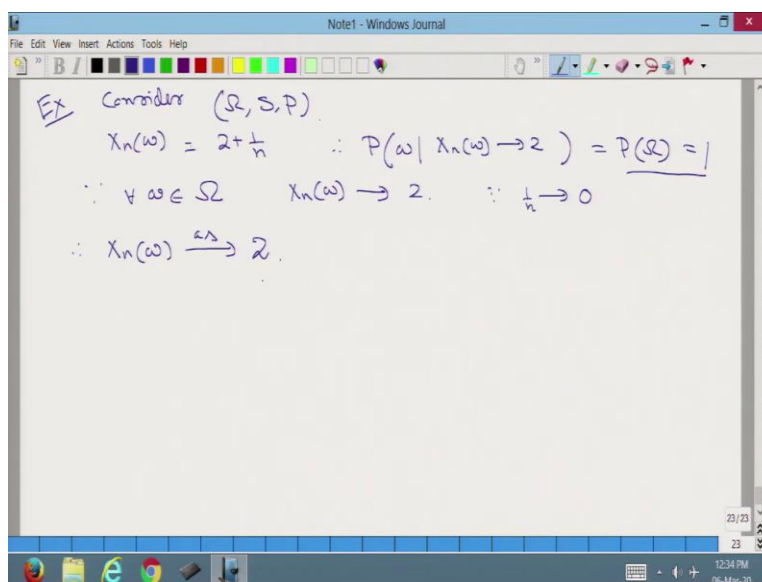 Note1 - Windows Journal
File Edit View Insert Actions Tools Help
B I
Ex Consider (Ω, S, P)
Xn(ω) = 2+1/n ∴ P(ω| Xn(ω) → 2 ) = P(Ω) = 1
∵ ∀ ω ∈ Ω Xn(ω) → 2. ∵ 1/n → 0
∴ Xn(ω) as→ 2.
23/23
23
12:34 PM
06-Mar-20